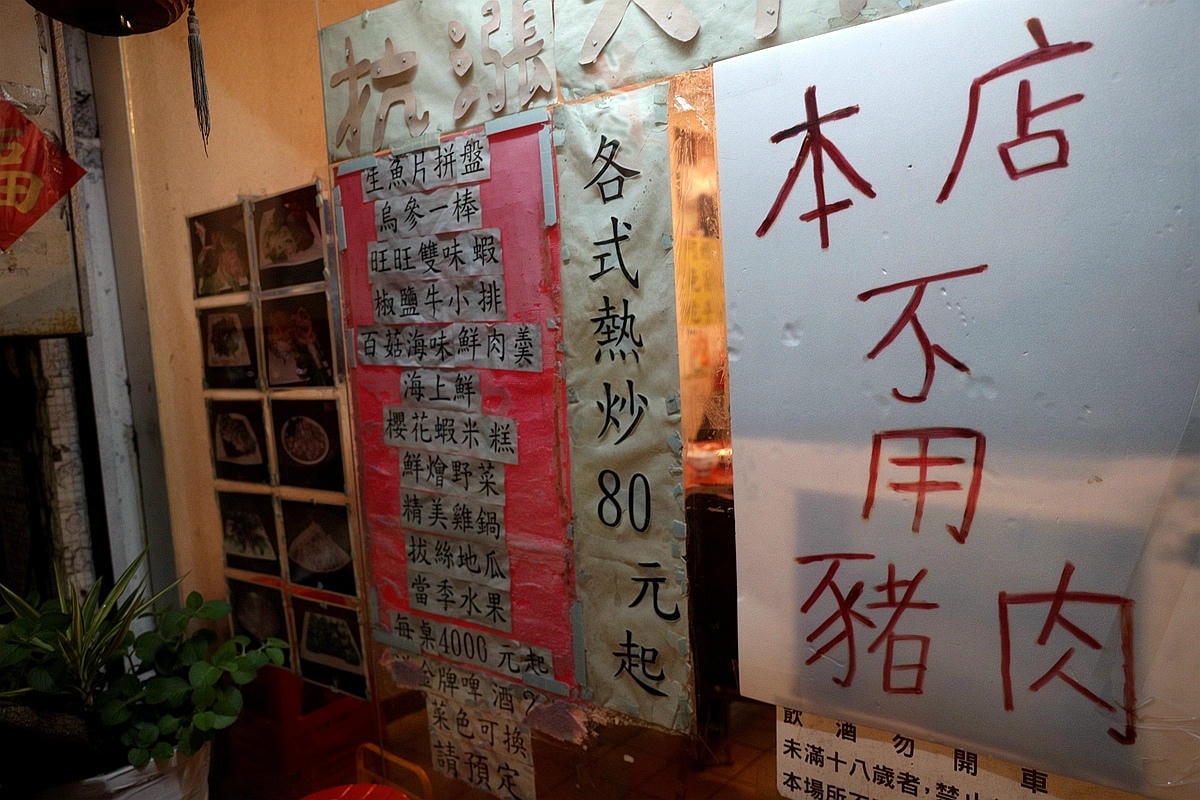 福
抗漲
生魚片拼盤
烏參一棒
旺旺雙味蝦
椒鹽牛小排
百菇海味鮮肉羹
海上鮮
櫻花蝦米糕
鮮燴野菜
精美雞鍋
拔絲地瓜
當季水果
每桌4000元起
金牌啤酒?
菜色可換
請預定
各式熱炒80元起
本店
不用
豬肉
飲酒勿開車
未滿十八歲者,禁止
本場所不